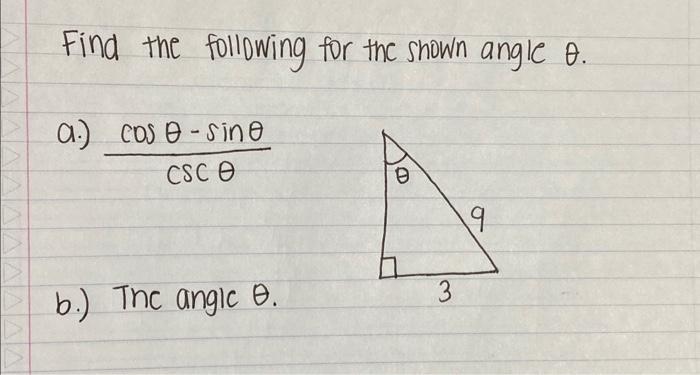 Find the following for the shown angle θ.
a.) cos θ - sin θ
csc θ
θ
9
3
b.) The angle θ.